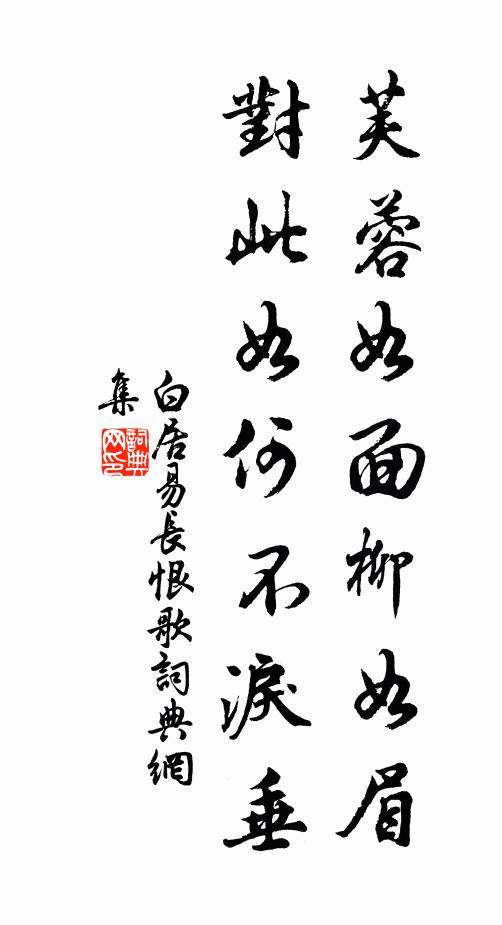 芙蓉如面柳如眉
對此如何不淚垂
白居易長恨歌詞典網
集
詞典
网印